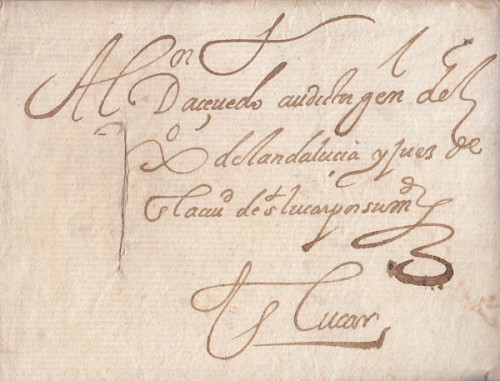 Al
Daçevedo auditor gen del
de landalucia y Jues de
la ciud de s lucar por su md
s Lucar